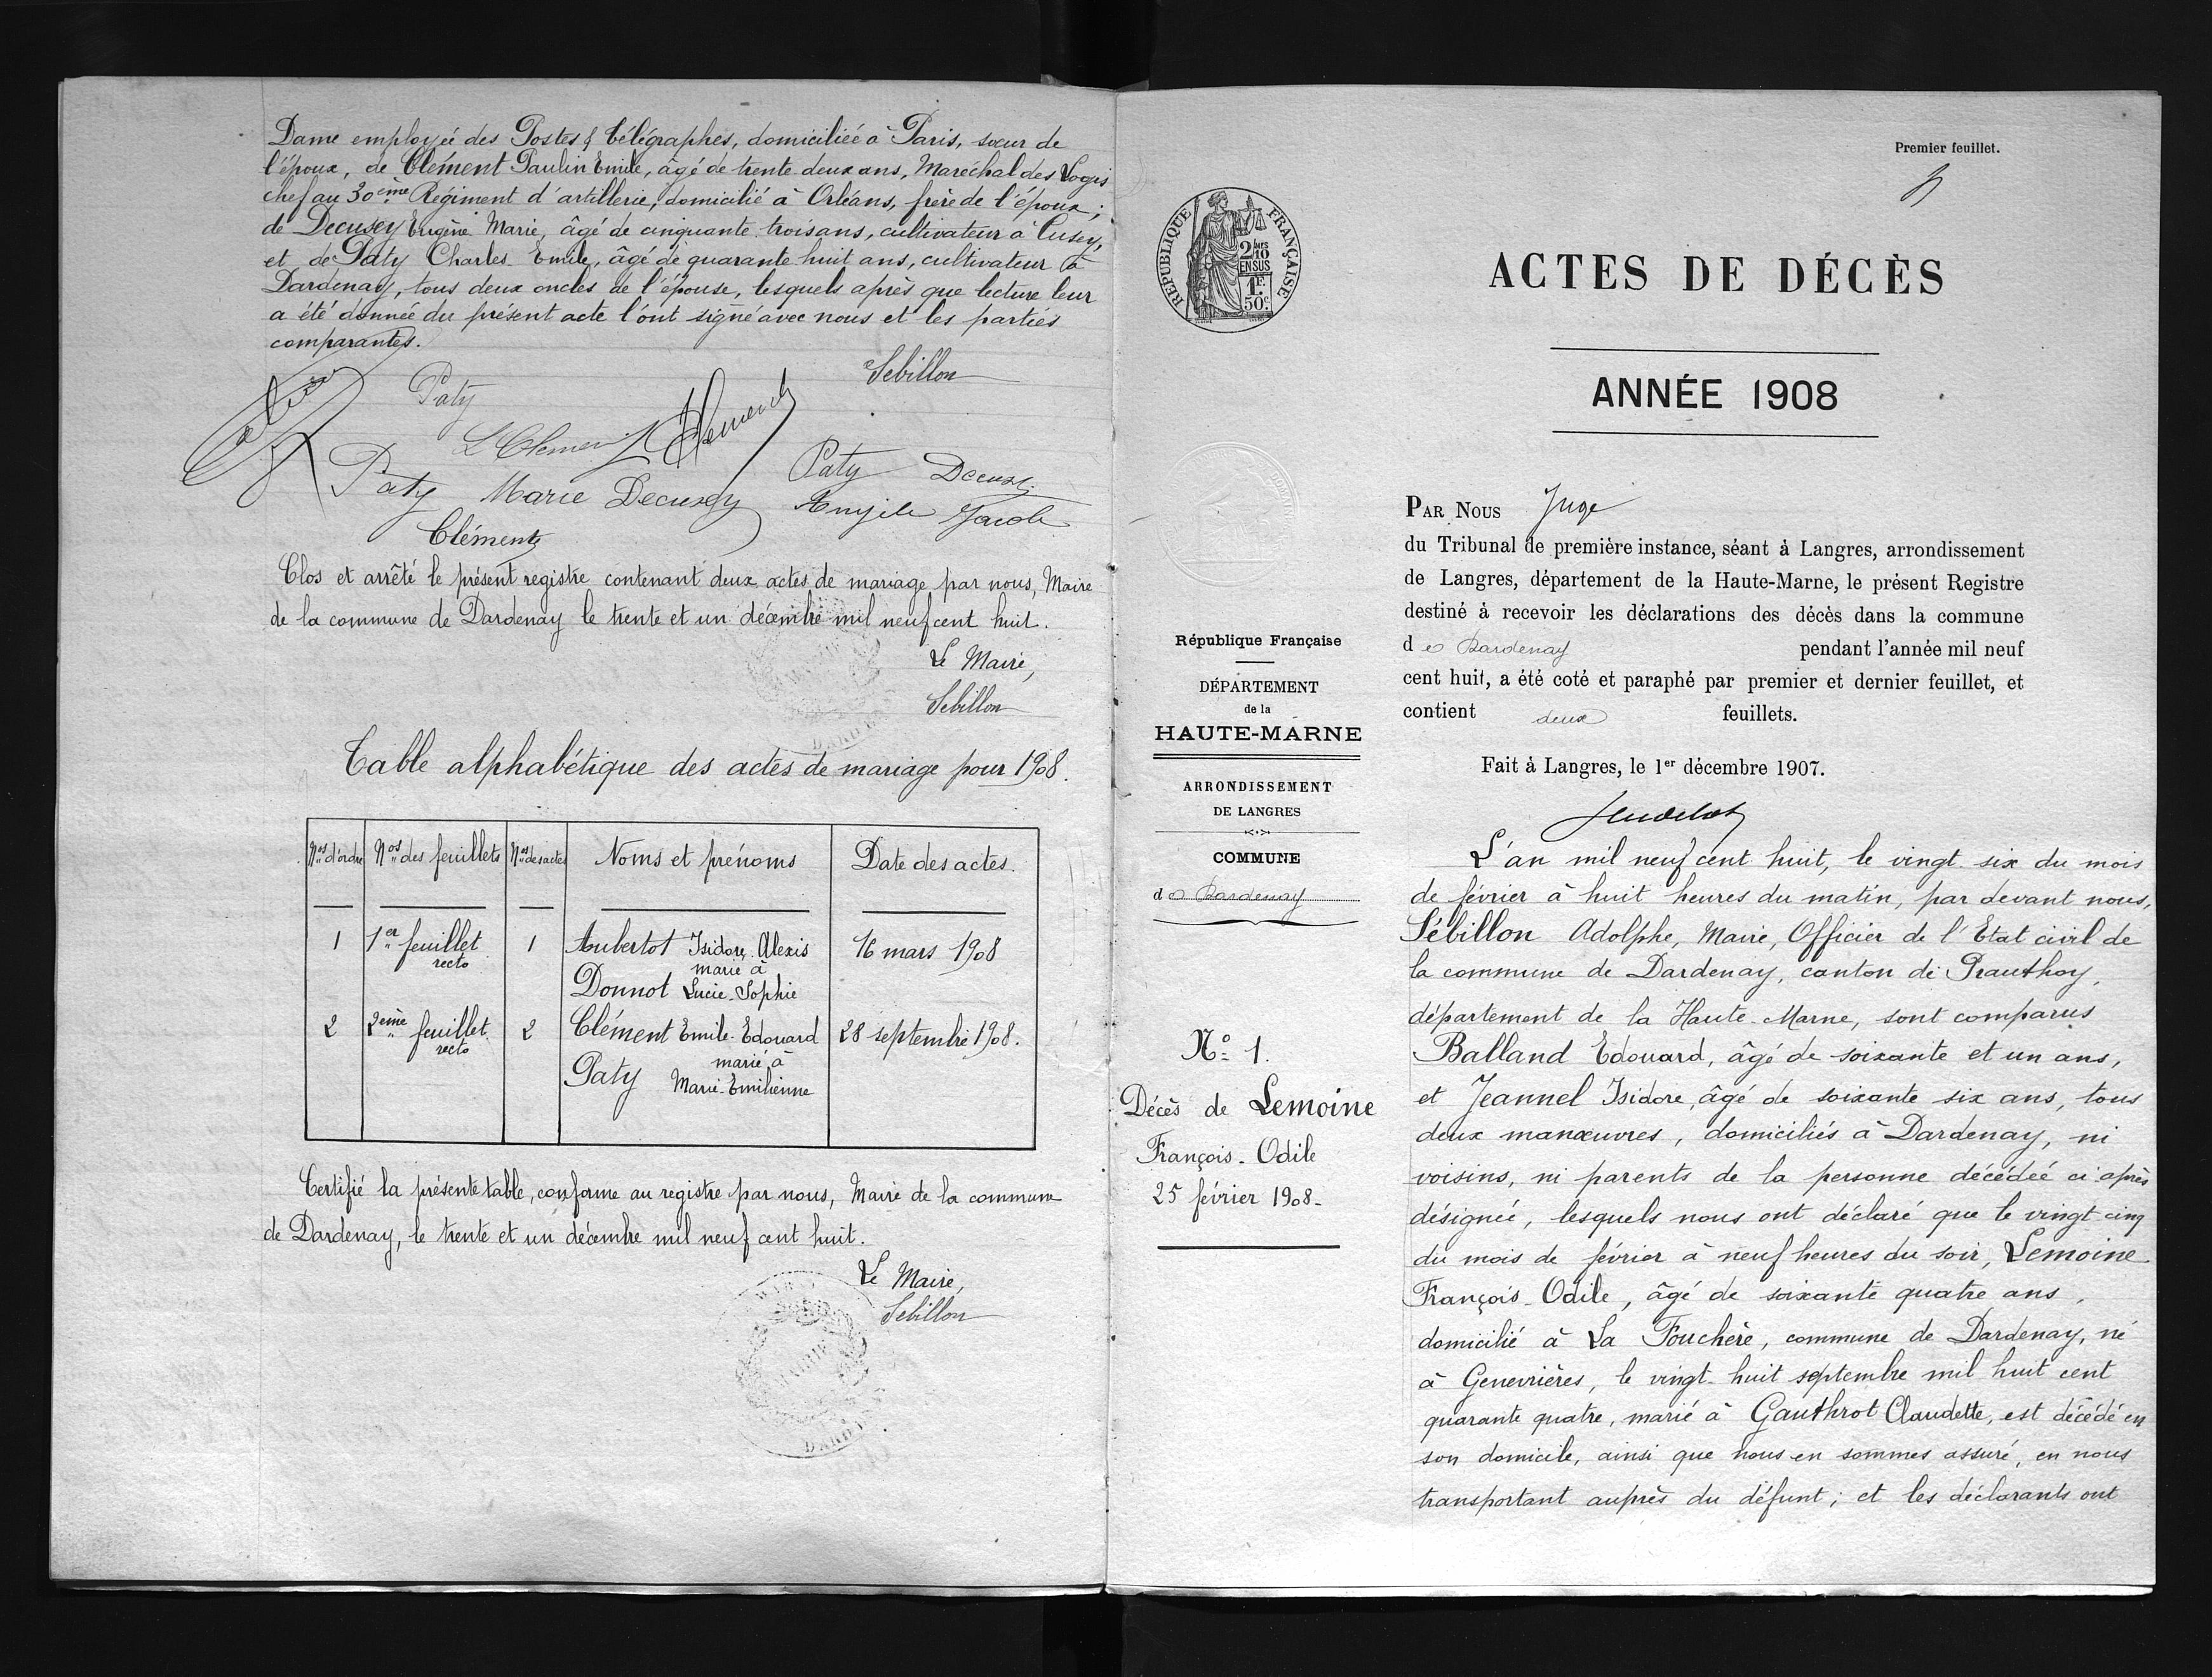 Dame employée des Postes & Télégraphes, domiciliée à Paris, sœur de
l'époux, de Clément Paulin Emile, âgé de trente deux ans, Maréchal des Logis
chef au 30ème Régiment d'artillerie, domicilié à Orléans, frère de l'époux ;
de Decusey Eugène Marie, âgé de cinquante trois ans, cultivateur à Cusey,
et de Paty Charles Emile, âgé de quarante huit ans, cultivateur à
Dardenay, tous deux oncles de l'épouse, lesquels après que lecture leur
a été donnée du présent acte l'ont signé avec nous et les parties
comparantes.
Sébillon
Paty
L Clément Clément
Paty Decusey
Paty Marie Decusey Angèle Jacob
Clément
Clos et arrêté le présent registre contenant deux actes de mariage par nous, Maire
de la commune de Dardenay le trente et un décembre mil neuf cent huit.
Le Maire,
Sébillon
Table alphabétique des actes de mariage pour 1908.
Nos d'ordre Nos des feuillets Nos des actes Noms et prénoms Date des actes.
1 1er feuillet recto 1 Aubertot Isidore Alexis 16 mars 1908
marié à
Donnot Lucie-Sophie
2 2ème feuillet recto 2 Clément Emile-Edouard 28 septembre 1908.
marié à
Paty Marie-Emilienne
Certifié la présente table, conforme au registre par nous, Maire de la commune
de Dardenay, le trente et un décembre mil neuf cent huit.
Le Maire,
Sébillon
Premier feuillet.
RÉPUBLIQUE FRANÇAISE
2/10 EN SUS
1F. 50c.
ACTES DE DÉCÈS
ANNÉE 1908
PAR NOUS Juge
du Tribunal de première instance, séant à Langres, arrondissement
de Langres, département de la Haute-Marne, le présent Registre
destiné à recevoir les déclarations des décès dans la commune
de Dardenay pendant l'année mil neuf
cent huit, a été coté et paraphé par premier et dernier feuillet, et
contient deux feuillets.
Fait à Langres, le 1er décembre 1907.
République Française
DÉPARTEMENT
de la
HAUTE-MARNE
ARRONDISSEMENT
DE LANGRES
COMMUNE
de Dardenay
N° 1.
Décès de Lemoine
François-Odile
25 février 1908-
L'an mil neuf cent huit, le vingt six du mois
de février à huit heures du matin, par devant nous,
Sébillon Adolphe, Maire, Officier de l'Etat civil de
la commune de Dardenay, canton de Prauthoy,
département de la Haute-Marne, sont comparus
Balland Edouard, âgé de soixante et un ans,
et Jeannel Isidore, âgé de soixante six ans, tous
deux manœuvres, domiciliés à Dardenay, ni
voisins, ni parents de la personne décédée ci-après
désignée, lesquels nous ont déclaré que le vingt-cinq
du mois de février à neuf heures du soir, Lemoine
François-Odile, âgé de soixante quatre ans,
domicilié à La Fouchère, commune de Dardenay, né
à Genevrières, le vingt-huit septembre mil huit cent
quarante quatre, marié à Gauthrot Claudette, est décédé en
son domicile, ainsi que nous en sommes assuré, en nous
transportant auprès du défunt ; et les déclarants ont